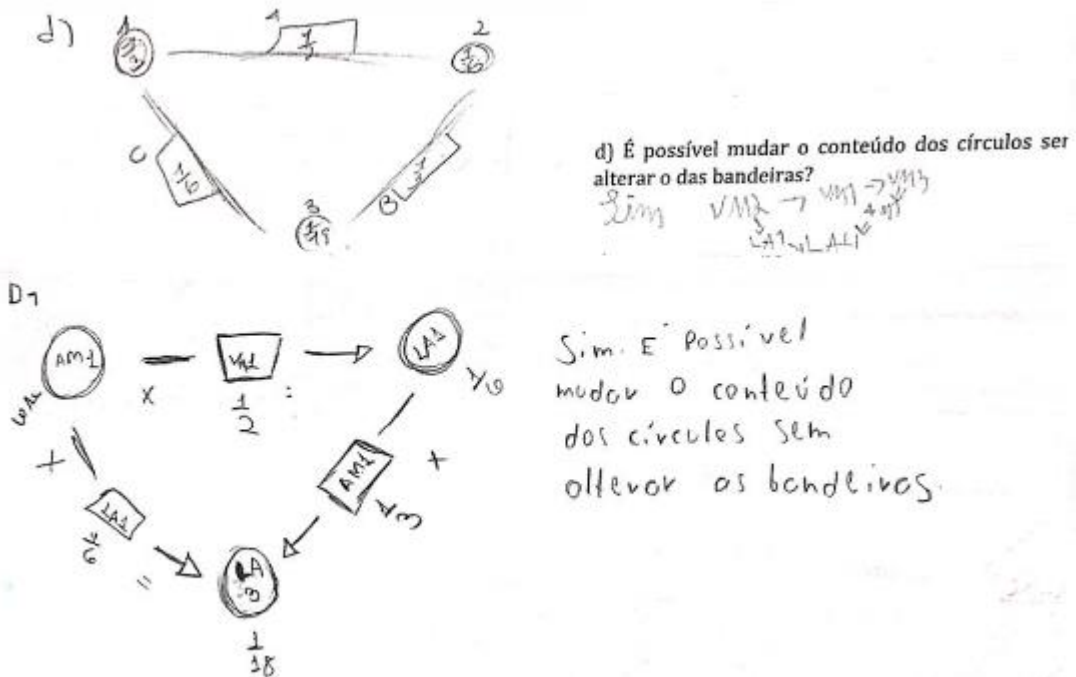 d)
1
A
1/2
2
1/6
C
1/6
B
1/3
3
1/18
d) É possível mudar o conteúdo dos círculos ser
alterar o das bandeiras?
Sim
D1
AM1
VM1
LA1
x
1/2
=
1/6
x
AM1
1/3
x
LA1
1/6
=
LA
3
1/18
Sim. É Possível
mudar o conteúdo
dos círculos sem
alterar as bandeiras.